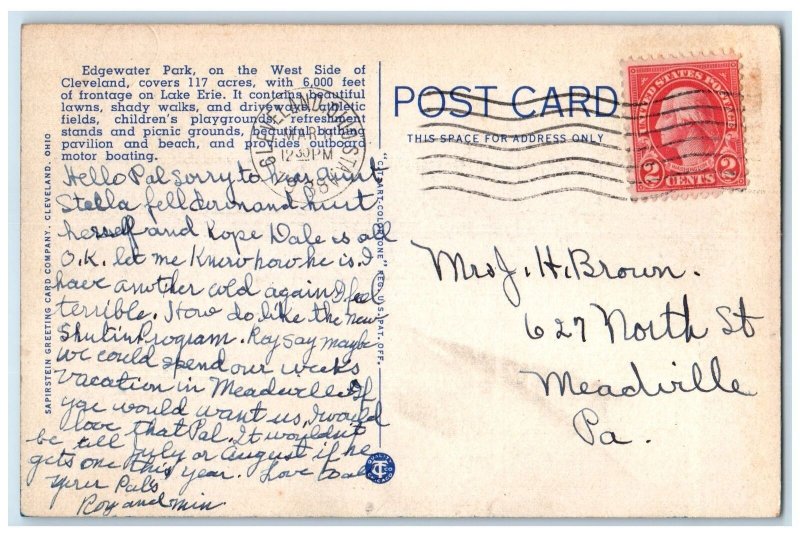 Edgewater Park, on the West Side of
Cleveland, covers 117 acres, with 6,000 feet
of frontage on Lake Erie. It contains beautiful
lawns, shady walks, and driveways, athletic
fields, children's playgrounds, refreshment
stands and picnic grounds, beautiful bathing
pavilion and beach, and provides outboard
motor boating.
Hello Pal Sorry to hear Aunt
Stella fell down and hurt
herself and hope Dale is all
O.K. let me Know how he is. I
have another cold again I feel
terrible. How do like the new
Shutin Program. Roy say maybe
we could spend our weeks
vacation in Meadville. If
you would want us, I would
love that Pal. It wouldn't
be till July or August if he
gets one this year. Love to all
your Pals
Roy and Min
SAPIRSTEIN GREETING CARD COMPANY, CLEVELAND, OHIO
"C.T. ART-COLORTONE" REG. U.S. PAT. OFF.
CLEVELAND, OHIO
MAR
12 30 PM
POST CARD
THIS SPACE FOR ADDRESS ONLY
UNITED STATES POSTAGE
2 CENTS 2
Mrs J. H. Brown.
627 North St
Meadville
Pa.